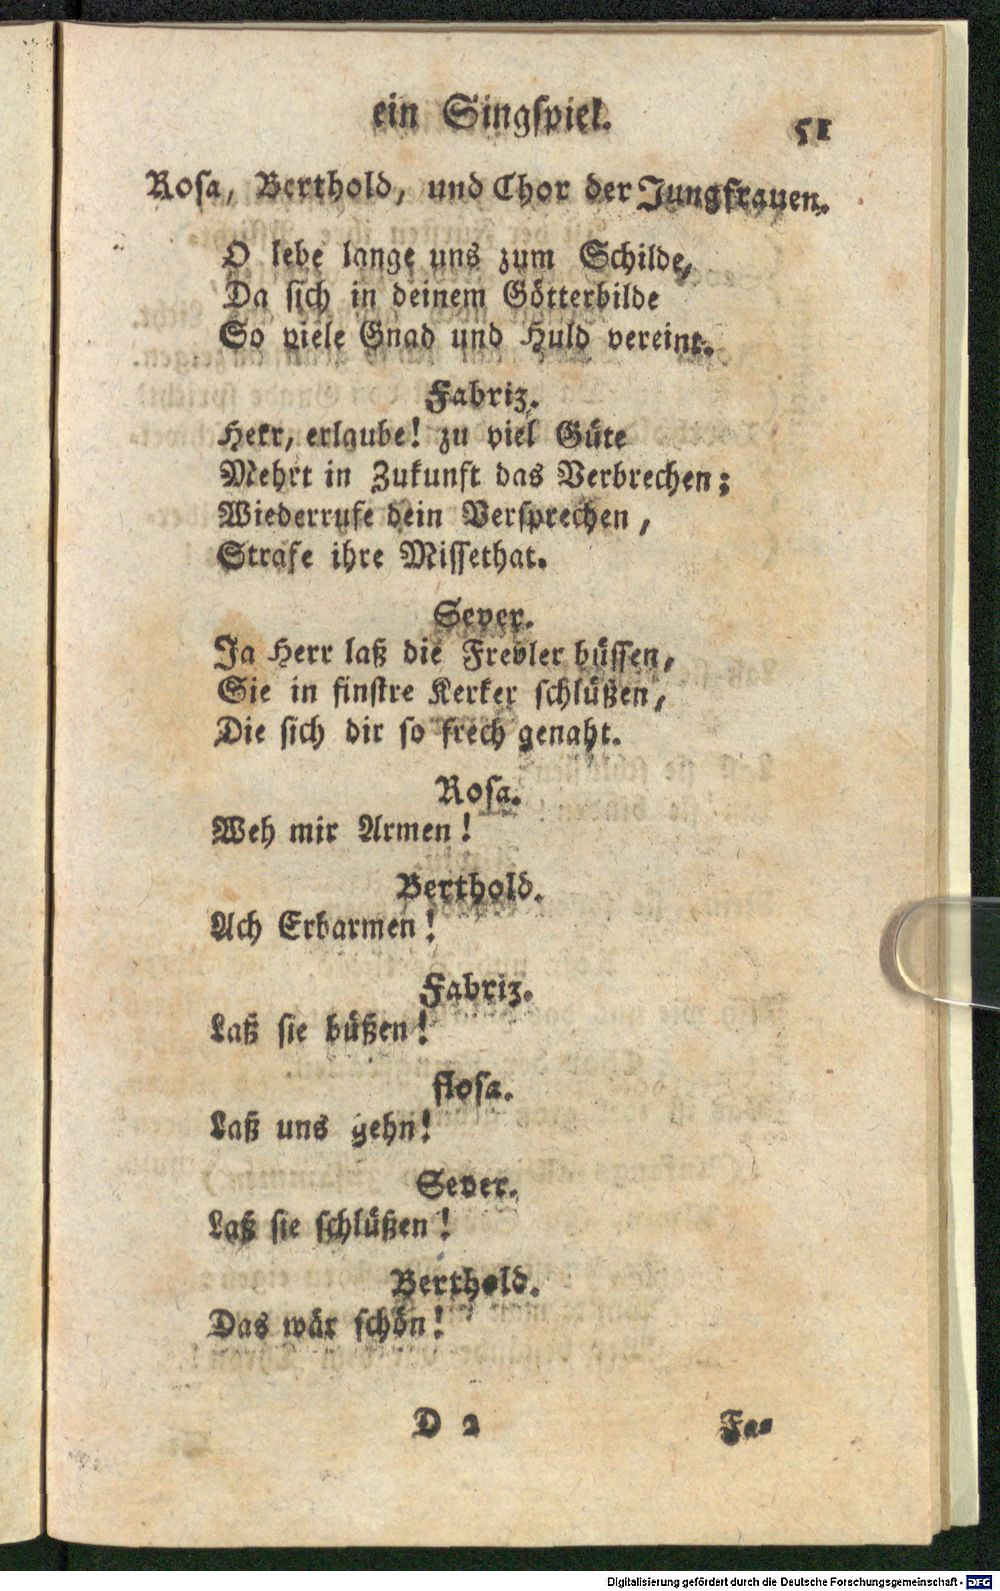 ein Singspiel.
51
Rosa, Berthold, und Chor der Jungfrauen.
O lebe lange uns zum Schilde,
Da sich in deinem Götterbilde
So viele Gnad und Huld vereint.
Fabriz.
Herr, erlaube! zu viel Güte
Mehrt in Zukunft das Verbrechen;
Wiederrufe dein Versprechen,
Strafe ihre Missethat.
Sever.
Ja Herr laß die Frevler büssen,
Sie in finstre Kerker schlüßen,
Die sich dir so frech genaht.
Rosa.
Weh mir Armen!
Berthold.
Ach Erbarmen!
Fabriz.
Laß sie büßen!
Rosa.
Laß uns gehn!
Sever.
Laß sie schlüßen!
Berthold.
Das wär schön!
D 2
Fa-
Digitalisierung gefördert durch die Deutsche Forschungsgemeinschaft - DFG